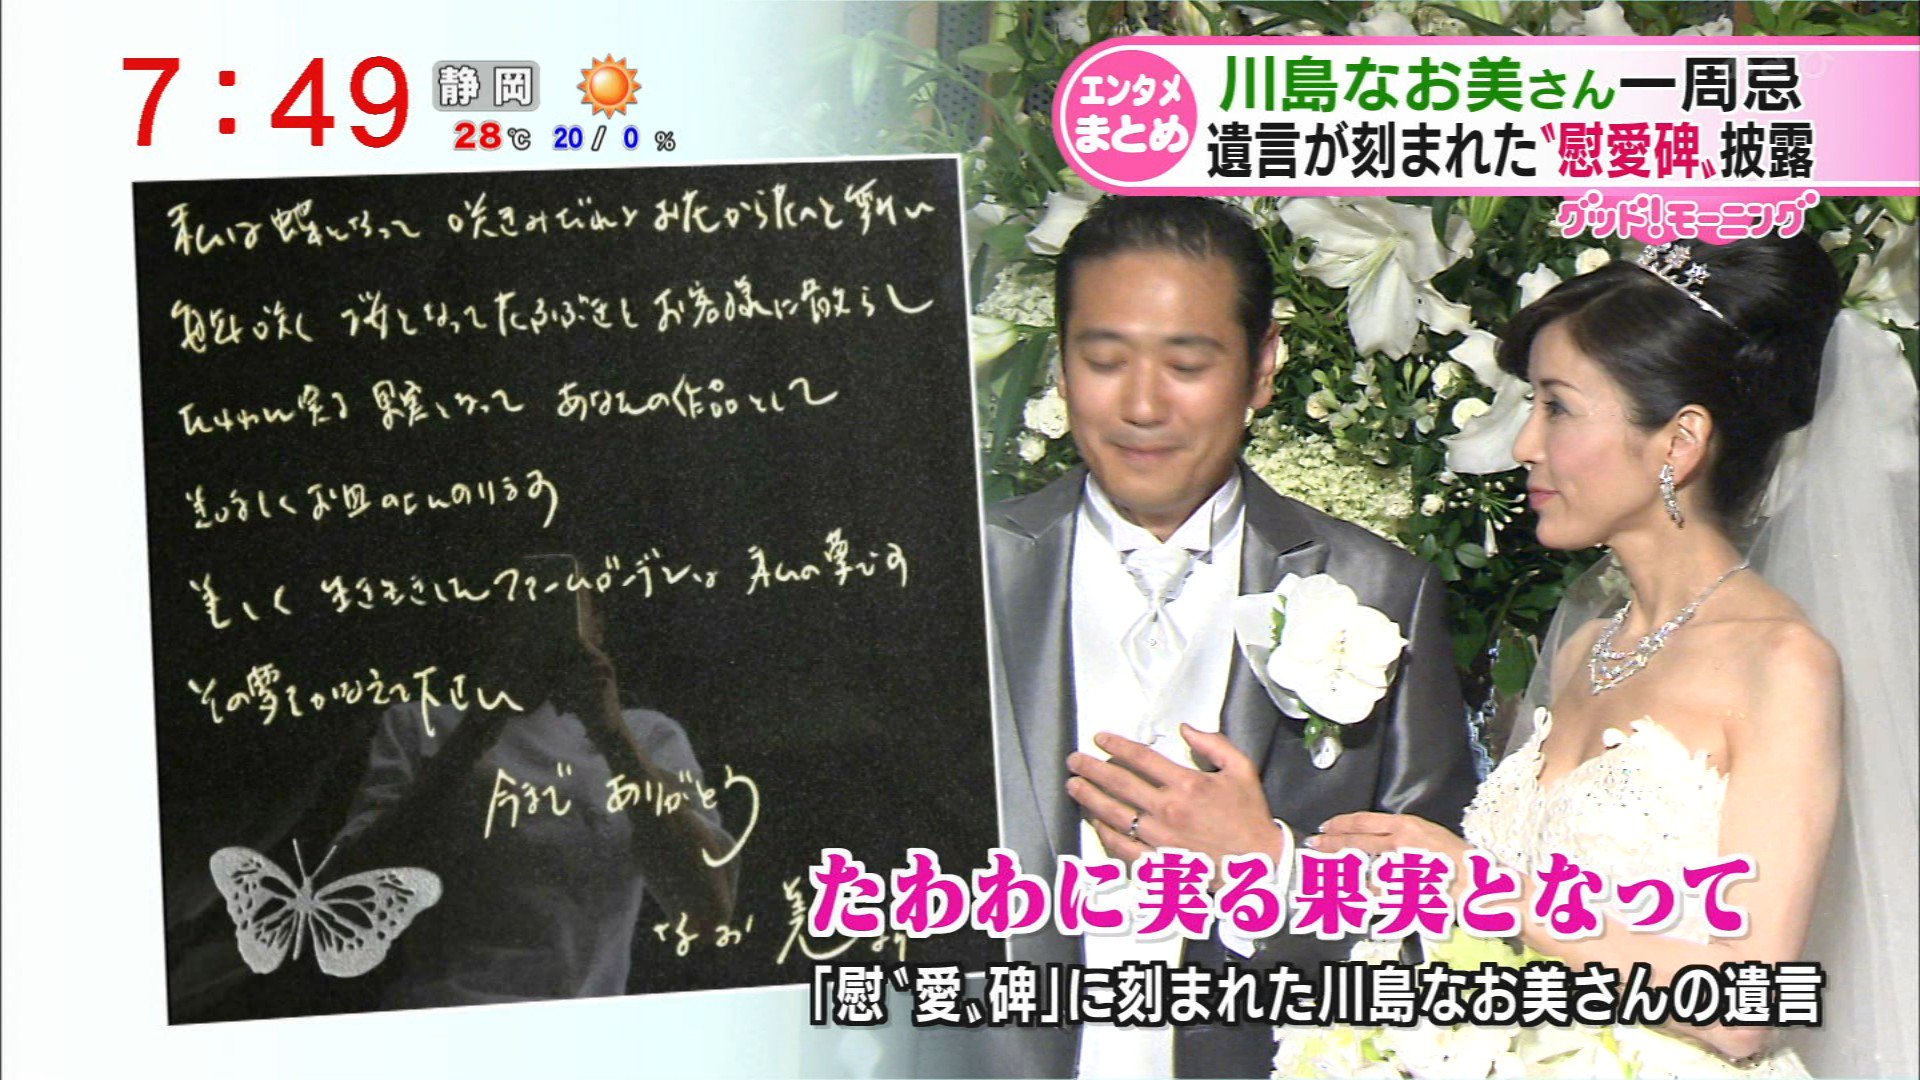 7:49
静岡
28℃ 20/0%
エンタメ
まとめ
川島なお美さん一周忌
遺言が刻まれた〝慰愛碑〟披露
グッド!モーニング
私は蝶となって 咲きみだれる お花から花へと舞い
毎年咲く 桜となって 花ふぶきを お客様に散らし
たわわに実る 果実となって あなたの作品として
美しくお皿の上にのります
美しく 生き生きした ファームガーデンは 私の夢です
その夢をかなえて下さい
今まで ありがとう
なお美より
たわわに実る果実となって
「慰〝愛〟碑」に刻まれた川島なお美さんの遺言